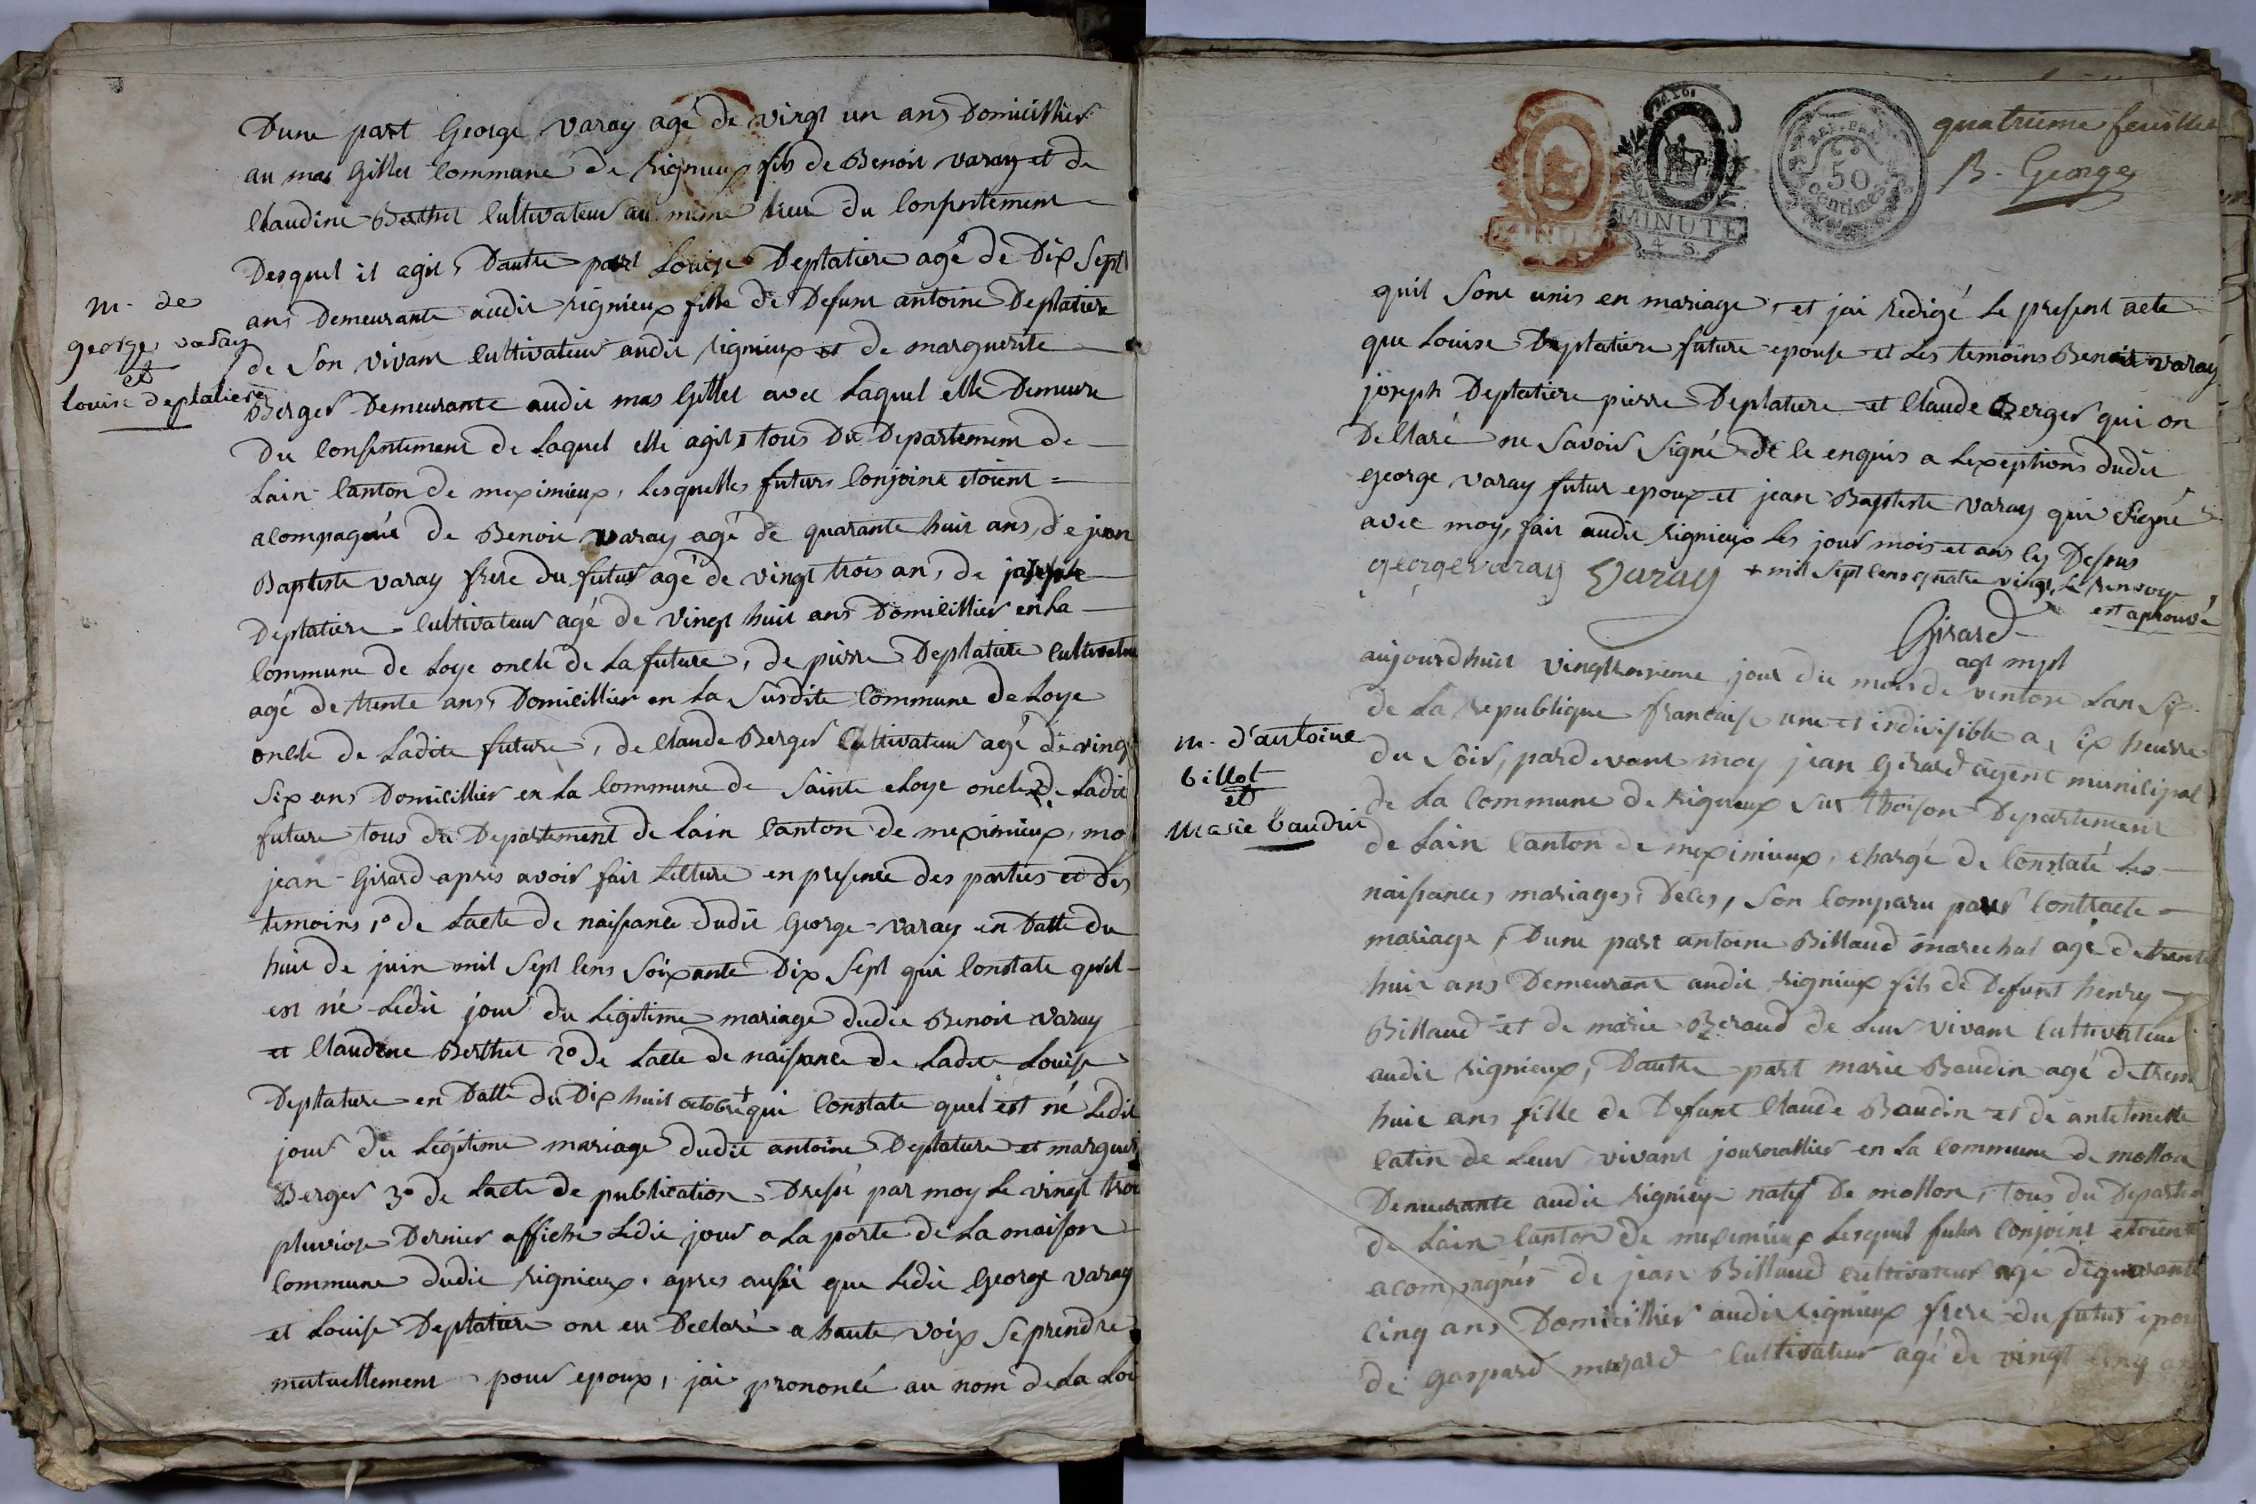 Dune part George varay agé de virgt un ans Domicillier
au mas Gillet Commune de rignieux fils de Benoit varay et de
Claudine Berthet Cultivateur au même lieu du Consentement
Desquel it agit, Dautre part Louise Deplatiere agé de Dix Sept
ans Demeurante audit rignieux fille de Defunt antoine Deplatiere
de Son vivant Cultivateur audit rignieux et de marguerite
Berger Demeurante audit mas Gillet avec Laquel elle Demeure
Du Consentement de Laquel elle agit, tous Du Departement de
Lain Canton de meximieux, Lesquelles futurs Conjoint etoient =
acompagnié de Benoit varay agé de quarante huit ans, de jean
Baptiste varay frere du futur agé de vingt trois an, de joseph
Deplatiere Cultivateur agé de vingt huit ans Domicillier en La
Commune de Loye oncle de La future, de pierre Deplatiere Cultivateur
agé de trente ans, Domicillier en La Susdite Commune de Loye
oncle de Ladite future, de Claude Berger Cultivateur agé de vingt
Six ans Domicillier en La Commune de Sainte eloye oncle de Ladit
future tous du Departement de Lain Canton de meximieux, mo
jean Girard apres avoir fait Lecture en presence des parties et des
temoins 1° de Lacte de naissance dudit George varay en Datte du
huit de juin mil Sept Cens Soixante Dix Sept qui Constate quil
est né Ledit jour du Légitime mariage dudit Benoit varay
et Claudine Berthet 2° de Lacte de naissance de Ladite Louise
Deplature en Datte du Dix huit octobre + qui Constate quel est né Ledit
jour du Légitime mariage dudit antoine Deplature et marguer
Berger 3° de Lacte de publication Dressé par moy Le vingt troi
pluviose Dernier affiché Ledit jour a La porte de La maison
Commune dudit rignieux. apres aussi que Ledit George varay
et Louise Deplatiere ont eu Declaré a haute voix Se prendre
mutuellement pour epoux, jai prononcé au nom de La Loi
m. de
george varay
et
louise deplatiere
quatrieme feuillet
B. Georges
MINUTE
MINUTE
4 S.
REP. FRA.
50
Centimes
quil Sont unis en mariage, et jai redigé Le present acte
que Louise Deplatiere future epouse et Les temoins Benoit varay
joseph Deplatiere pierre Deplature et Claude Berger qui on
Declaré ne Savoir Signé de ce enquis a Lexeptions dudit
George varay futur epoux et jean Baptiste varay qui Signé
avec moy, fait audit rignieux Les jour mois et ans Cy Dessus
georgevaray varay + mil Sept Cens quatre vingt, Le renvoye
est aprouvé
Girard
agt mpl
aujourdhuit vingttroisieme jour du mois de ventose Lan Six
de La republique francaise une et indivisible a Six heures
du Soir, pardevant moy jean Girard agent municipal
de La Commune de rignieux Sur thoison Departement
de Lain Canton de meximieux, chargé de Constaté Les
naissances, mariages, Deces, Son Comparu pour Contracté
mariage, Dune part antoine Billaud marechal agé de trente
huit ans Demeurant audit rignieux fils de Defunt henry
Billaud et de marie Beraud de Leur vivant Cultivateur
audit rignieux, Dautre part marie Baudin agé de trente
huit ans fille de Defunt Claude Baudin et de antoinette
Catin de Leur vivant journallier en La Commune de mollon
Demeurante audit rignieux natif De mollon, tous du Departem
de Lain Canton de meximieux Lesquel futur Conjoint etoient
acompagnés de jean Billaud Cultivateur agé de quarante
Cinq ans Domicillier audit rignieux frere du futur epou
de gaspard morard Cultivateur agé de vingt Cinq an
m. d'antoine
billot
et
Marie baudin